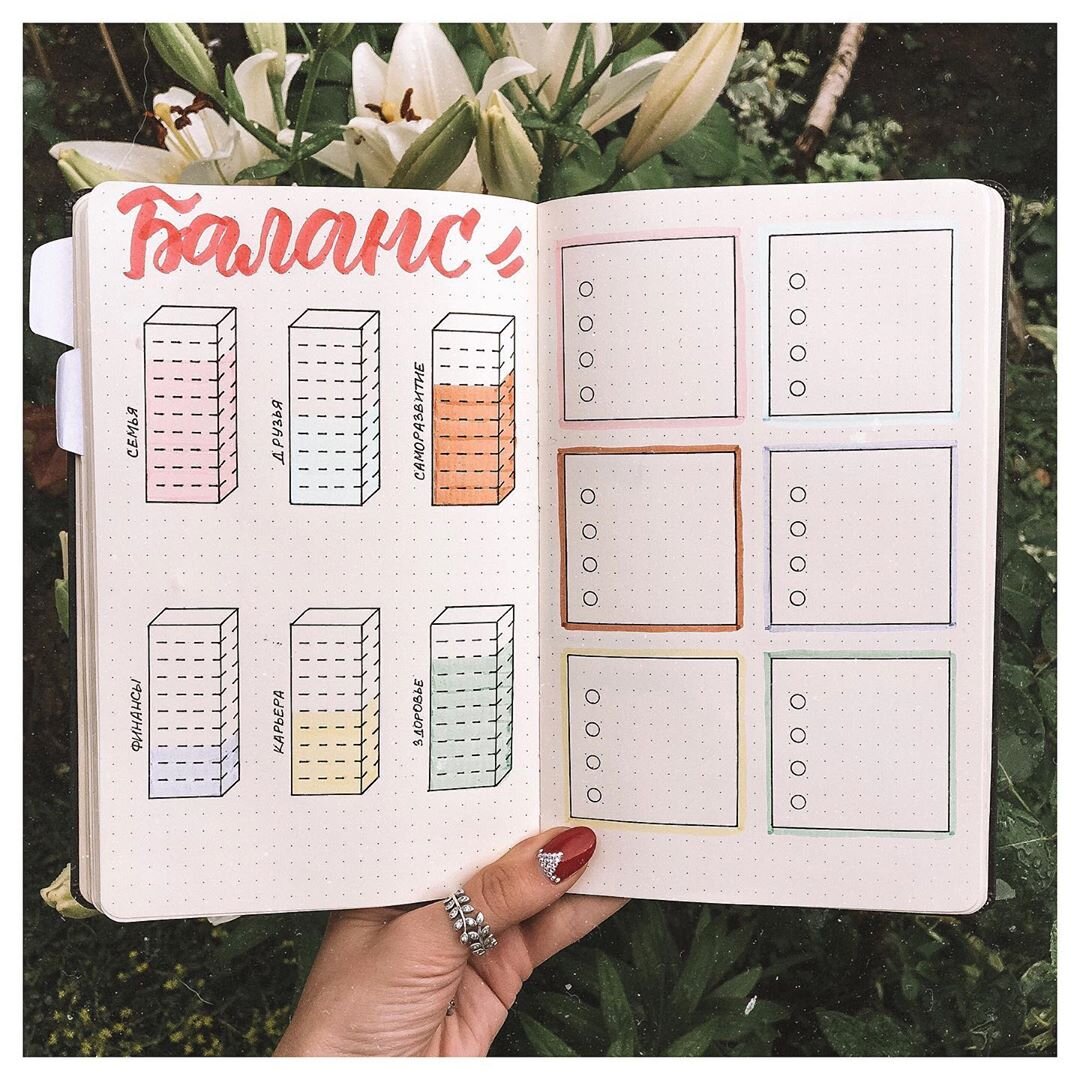 Баланс
СЕМЬЯ
ДРУЗЬЯ
САМОРАЗВИТИЕ
ФИНАНСЫ
КАРЬЕРА
ЗДОРОВЬЕ